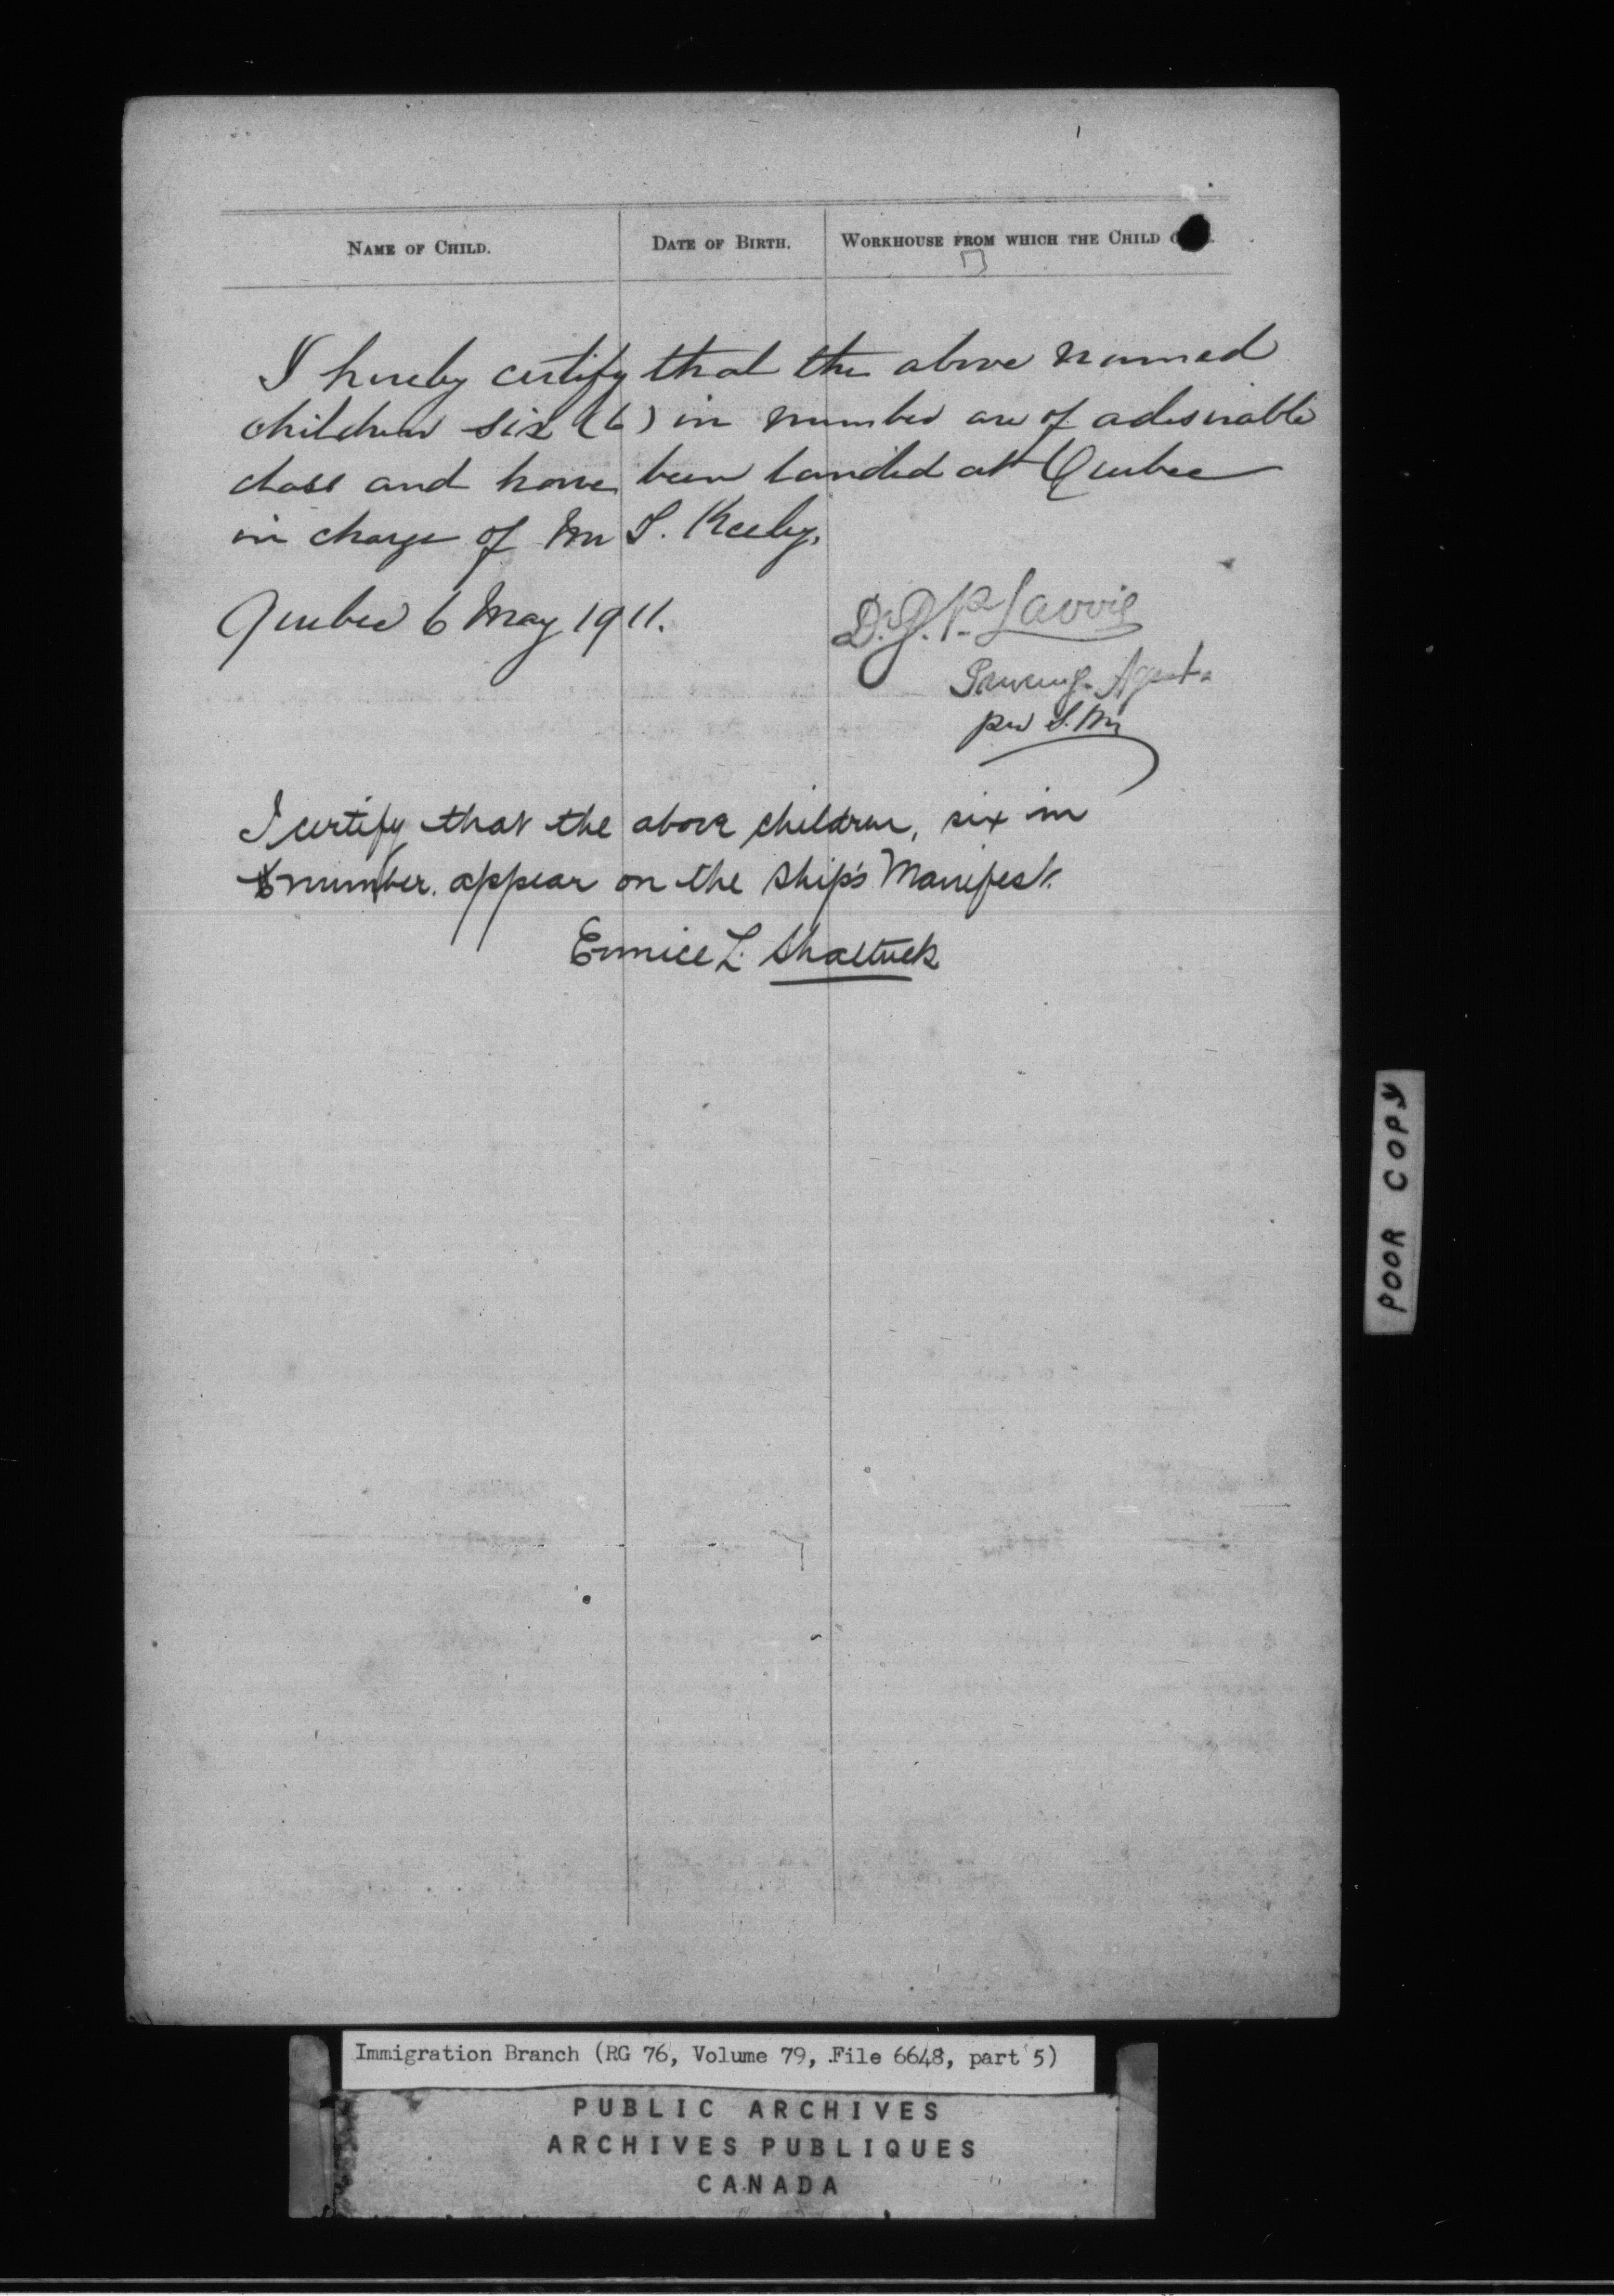 NAME OF CHILD. DATE OF BIRTH. WORKHOUSE FROM WHICH THE CHILD
I hereby certify that the above named
children six (6) in number are of a desirable
class and have been landed at Quebec
in charge of Mr S. Keeley.
Quebec 6 May 1911.
Dr. J. P. Lavoie
Agent.
per S. M
I certify that the above children, six in
number. appear on the Ship's Manifest.
Eunice L. Shattuck
POOR COPY
Immigration Branch (RG 76, Volume 79, File 6648, part 5)
PUBLIC ARCHIVES
ARCHIVES PUBLIQUES
CANADA